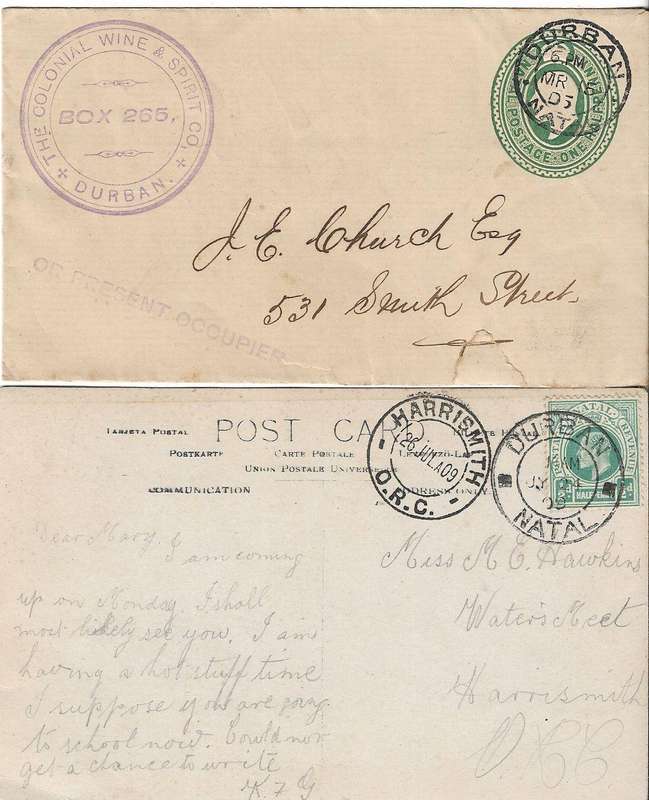 THE COLONIAL WINE & SPIRIT CO.
BOX 265,
DURBAN.
DURBAN
6 PM
MR
05
NATAL
POSTAGE · ONE HALF
J. E. Church Esq
531 Smith Street
OR PRESENT OCCUPIER
POST CARD
TARJETA POSTAL
POSTKARTE CARTE POSTALE
UNION POSTALE UNIVERSE
COMMUNICATION
ADDRESS ONLY
HARRISMITH
26 JUL 09
O.R.C.
DURBAN
NATAL
NATAL
REVENUE
HALF
Dear Mary,
I am coming
up on Monday. I shall
most likely see you. I am
having a hot stuff time
I suppose you are going
to school now. Could not
get a chance to write
K. F. G
Miss M. E. Hawkins
Waters Meet
Harrismith